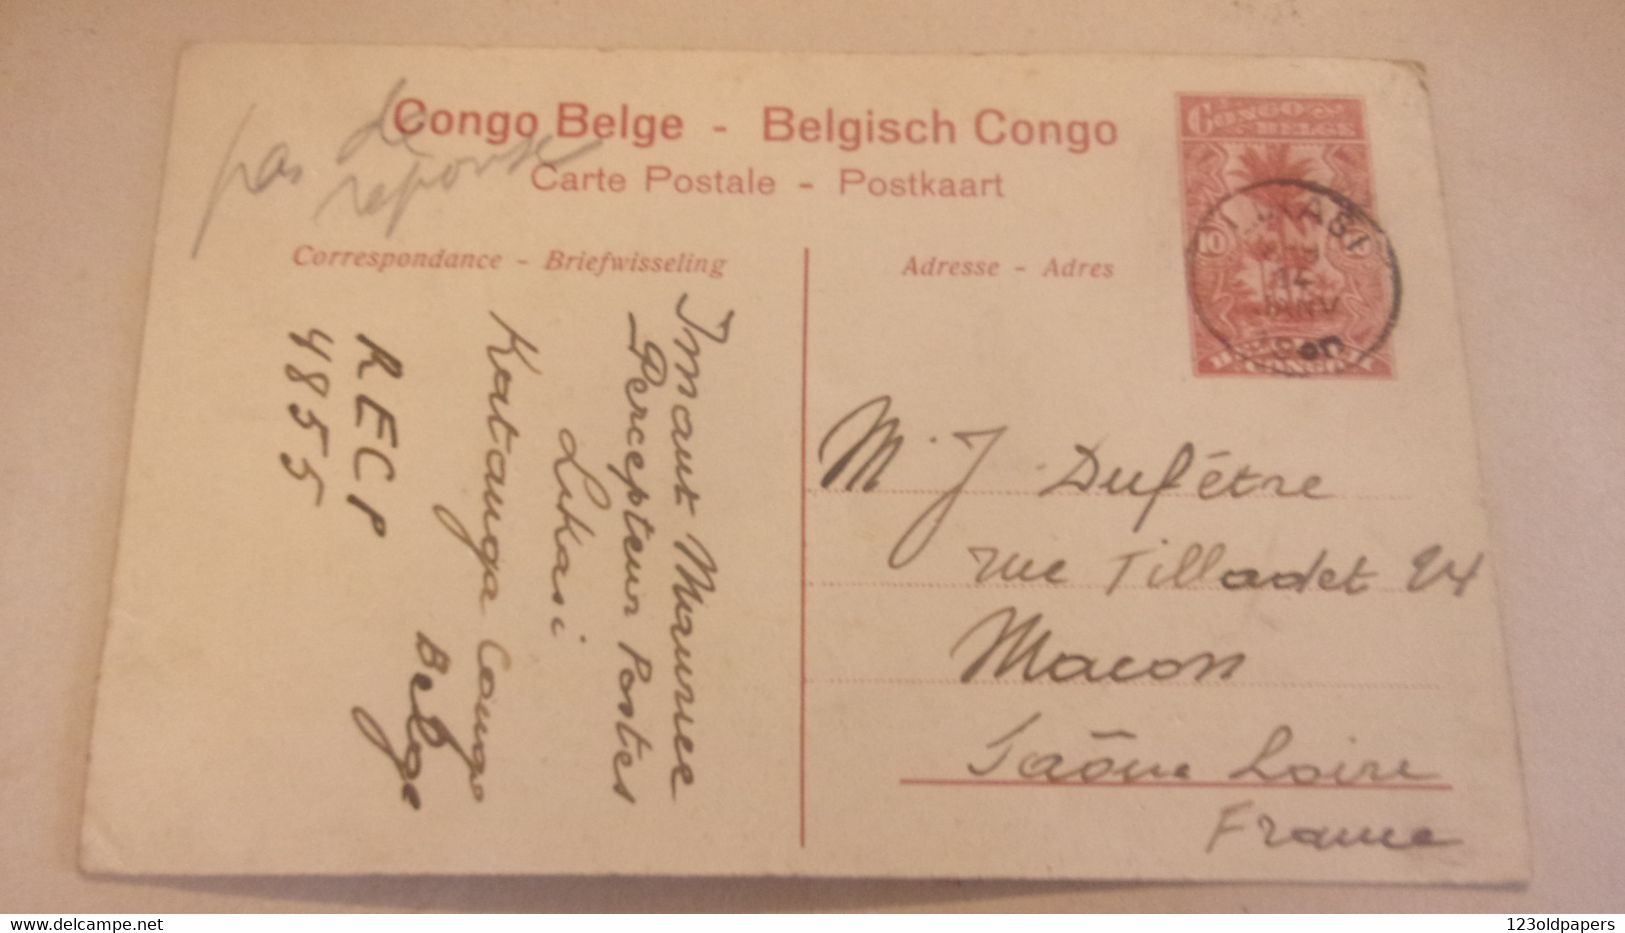 pas de
reponse
Congo Belge - Belgisch Congo
Carte Postale - Postkaart
Correspondance - Briefwisseling
Adresse - Adres
CONGO
BELGE
10
10
Maurice
Percepteur Postes
Likasi
Katanga Congo
Belge
RECP
4855
M. J Dufêtre
rue Tilladet 24
Macon
Saône Loire
France
delcampe.net
123oldpapers